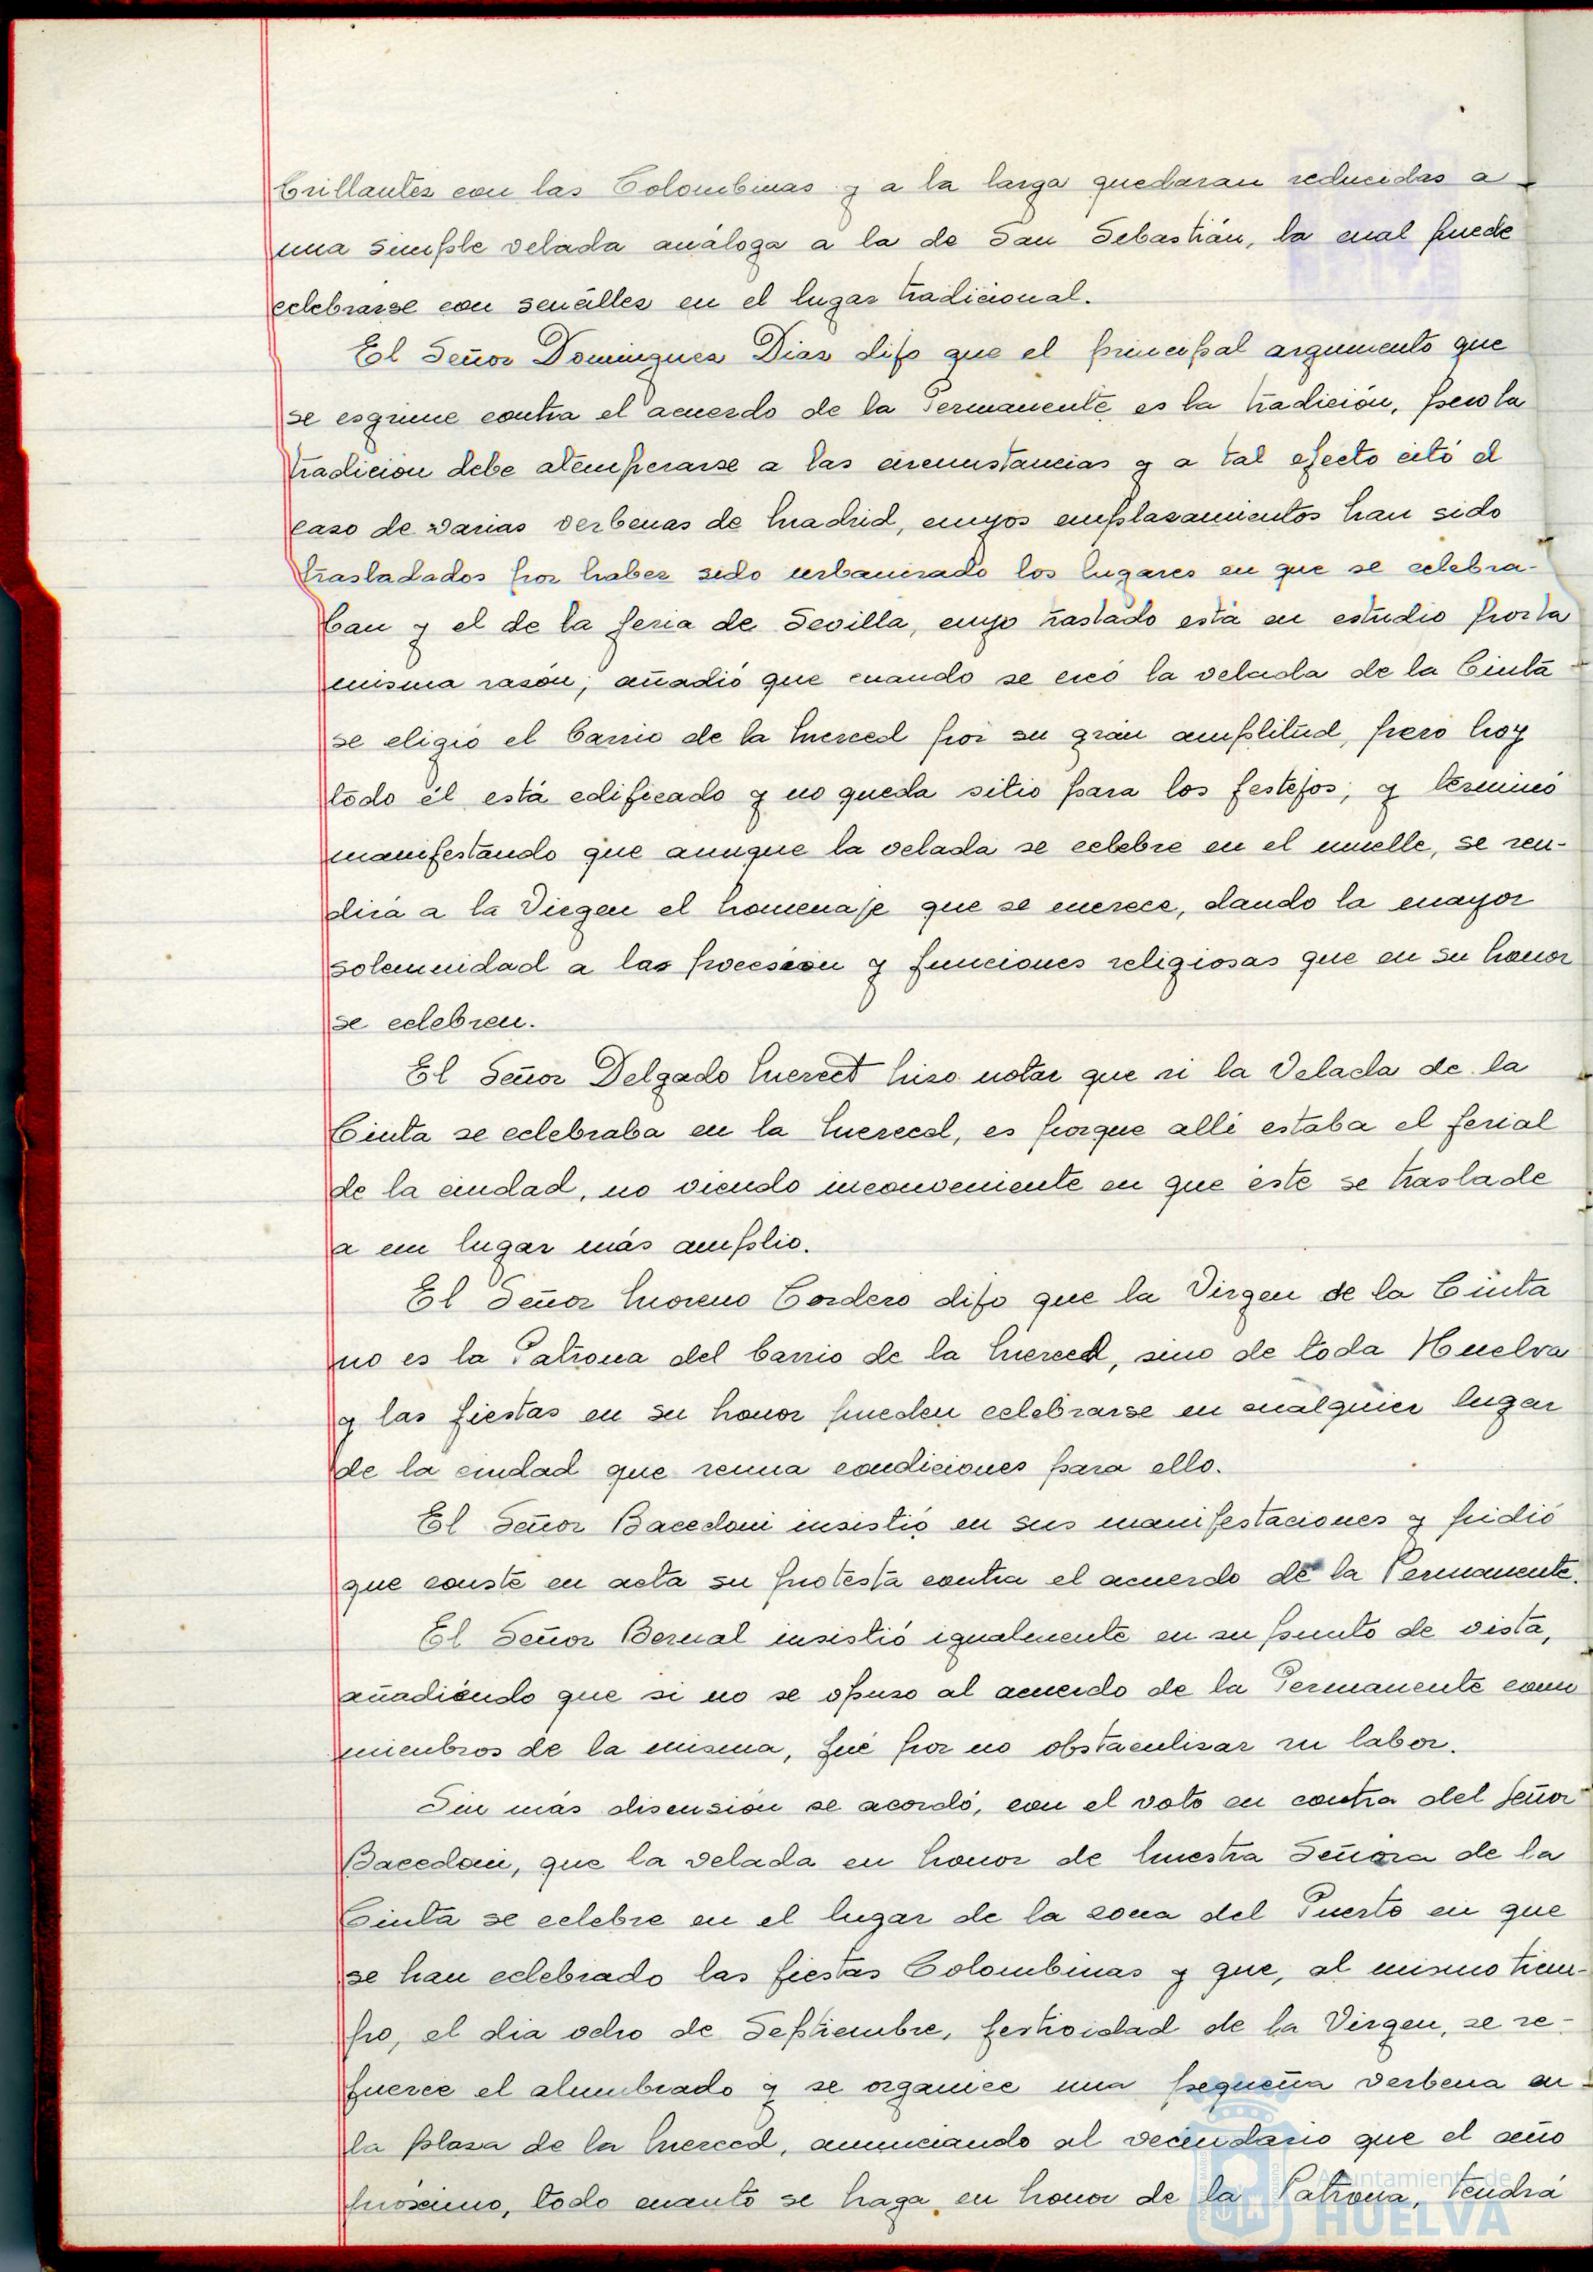 brillantez con las Colombinas y a la larga quedaran reducidas a
una simple velada análoga a la de San Sebastián, la cual puede
celebrarse con sencillez en el lugar tradicional.
El Señor Dominguez Diaz dijo que el principal argumento que
se esgrime contra el acuerdo de la Permanente es la tradición, pero la
tradición debe atemperarse a las circunstancias y a tal efecto citó el
caso de varias verbenas de Madrid, cuyos emplazamientos han sido
trasladados por haber sido urbanizado los lugares en que se celebra-
ban y el de la feria de Sevilla, cuyo traslado está en estudio por la
misma razón; añadió que cuando se creó la velada de la Cinta
se eligió el barrio de la Merced por su gran amplitud, pero hoy
todo él está edificado y no queda sitio para los festejos; y terminó
manifestando que aunque la velada se celebre en el muelle, se ren-
dirá a la Virgen el homenaje que se merece, dando la mayor
solemnidad a las procesion y funciones religiosas que en su honor
se celebren.
El Señor Delgado Merect hizo notar que si la Velada de la
Cinta se celebraba en la Merced, es porque alli estaba el ferial
de la ciudad, no viendo inconveniente en que éste se traslade
a un lugar más amplio.
El Señor Moreno Cordero dijo que la Virgen de la Cinta
no es la Patrona del barrio de la Merced, sino de toda Huelva
y las fiestas en su honor pueden celebrarse en cualquier lugar
de la ciudad que reuna condiciones para ello.
El Señor Bacedoni insistió en sus manifestaciones y pidió
que conste en acta su protesta contra el acuerdo de la Permanente.
El Señor Bernal insistió igualmente en su punto de vista,
añadiéndo que si no se opuso al acuerdo de la Permanente como
miembros de la misma, fué por no obstaculizar su labor.
Sin más discusión se acordó, con el voto en contra del señor
Bacedoni, que la velada en honor de Nuestra Señora de la
Cinta se celebre en el lugar de la zona del Puerto en que
se han celebrado las fiestas Colombinas y que, al mismo tiem-
po, el dia ocho de Septiembre, festividad de la Virgen, se re-
fuerce el alumbrado y se organice una pequeña verbena en
la plaza de la Merced, anunciando al vecindario que el año
próximo, todo cuanto se haga en honor de la Patrona, tendrá
Ayuntamiento de
HUELVA